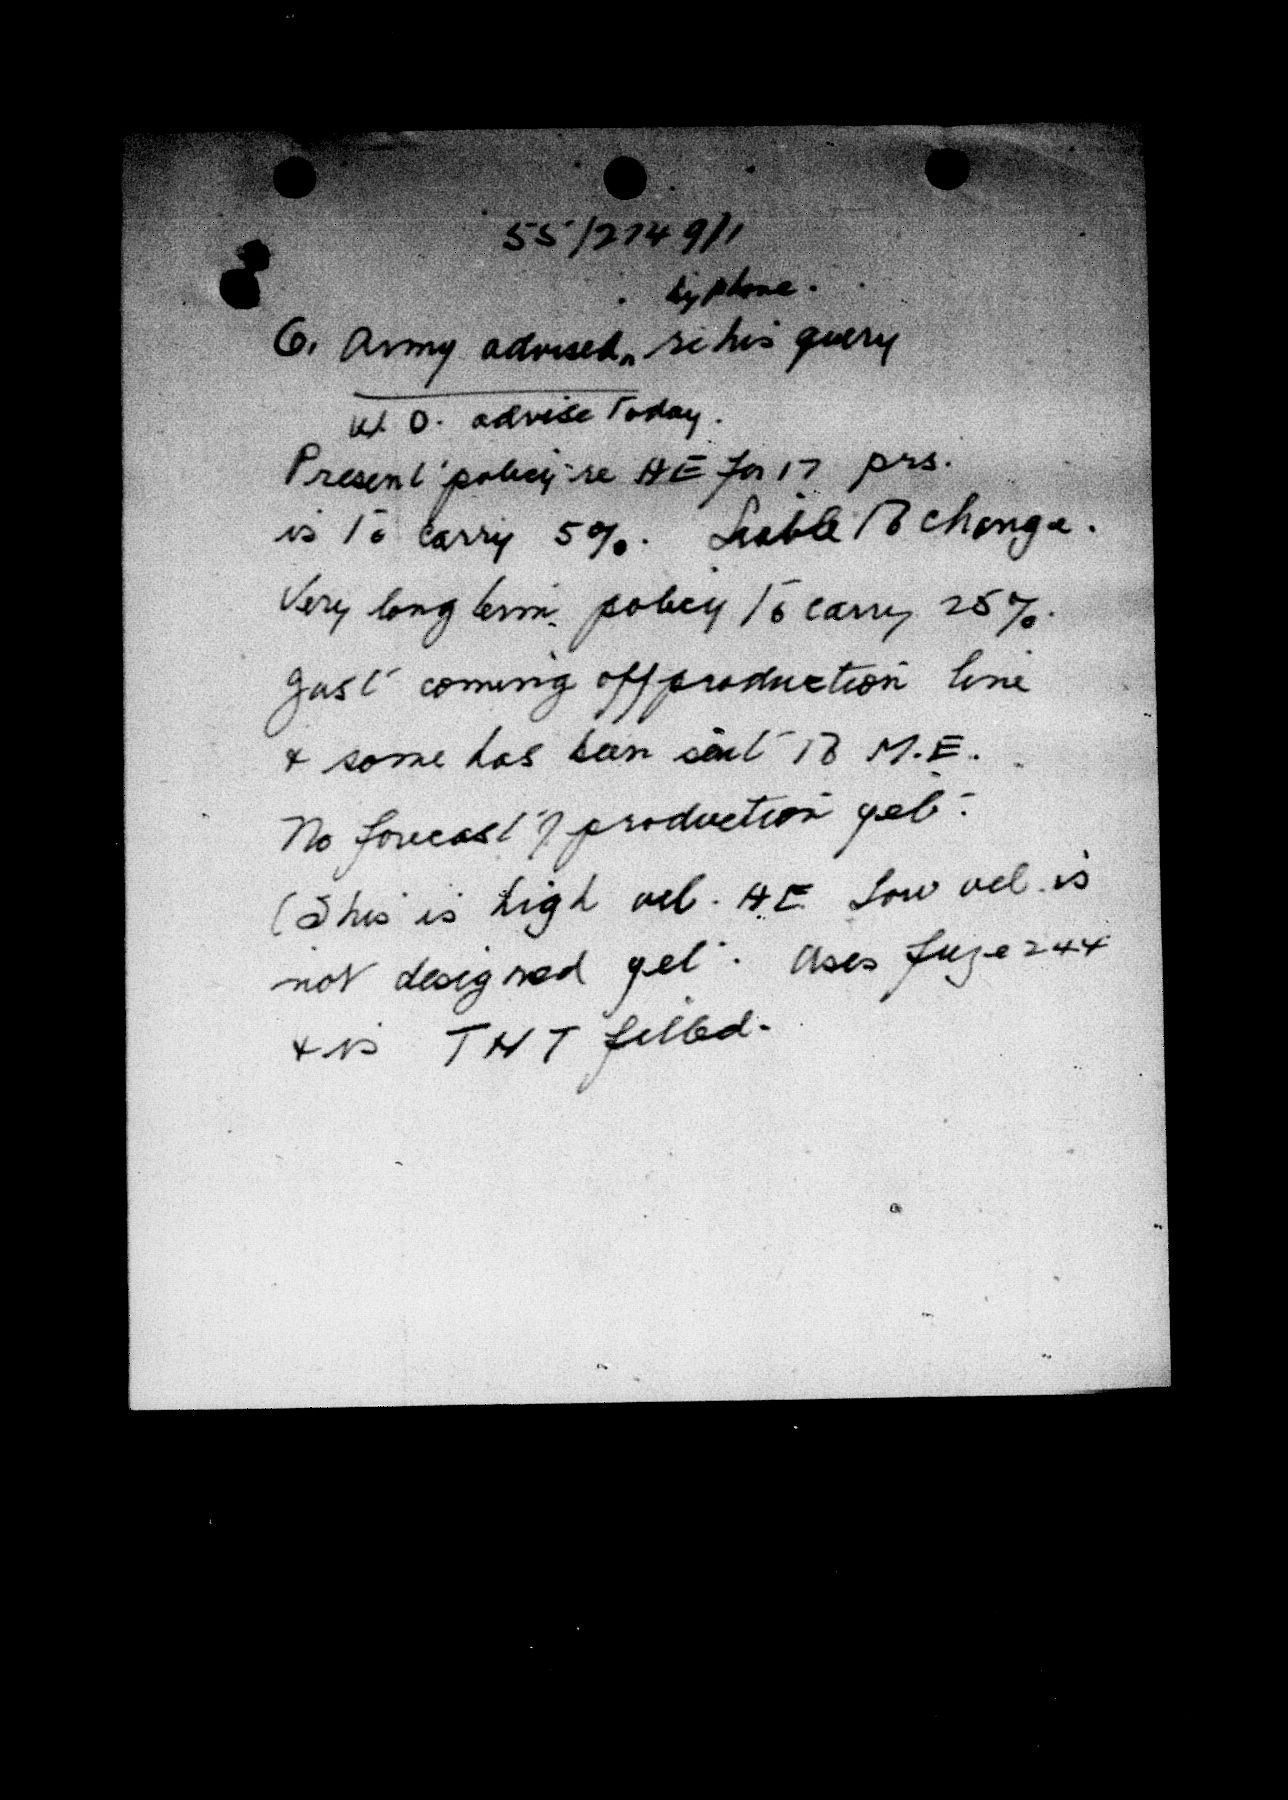 55/2749/1
by phone.
G. Army advised re his query
W.O. advise today.
Present policy re HE for 17 prs.
is to carry 5%. Liable to change.
Very long term policy to carry 25%.
Just coming off production line
& some has been sent to M.E.
No forecast of production yet.
(This is high vel. HE Low vel. is
not designed yet. Uses fuze 244
& is TNT filled.